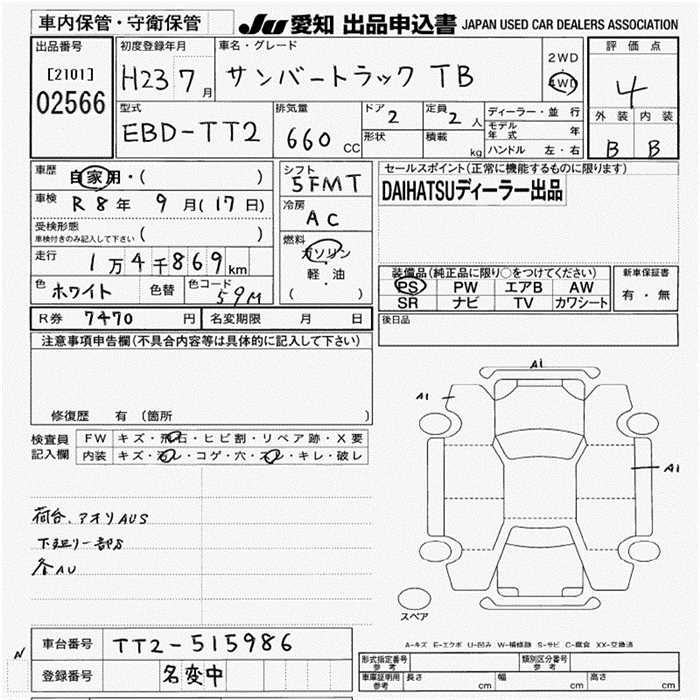 車内保管・守衛保管
JU 愛知 出品申込書 JAPAN USED CAR DEALERS ASSOCIATION
出品番号
[2101]
02566
初度登録年月
H23 7月
車名・グレード
サンバートラック TB
2WD
4WD
評価点
4
外装 内装
B B
型式
EBD-TT2
排気量
660 CC
ドア 2
形状
定員 2 人
積載 kg
ディーラー・並行
モデル年式 年
ハンドル 左・右
車歴 自家用・( )
車検 R8年 9月(17日)
受検形態
車検付きのみ記入して下さい ( )
走行 1万4千869km
色 ホワイト 色替 色コード 59M
シフト
5FMT
冷房
AC
燃料
ガソリン
軽・油
( )
セールスポイント(正常に機能するものに限ります)
DAIHATSUディーラー出品
装備品(純正品に限り○をつけてください)
PS PW エアB AW
SR ナビ TV カワシート
新車保証書
有・無
後日品
R券 7470 円 名変期限 月 日
注意事項申告欄(不具合内容等は具体的に記入して下さい)
修復歴 有 (箇所 )
検査員記入欄
FW キズ・飛石・ヒビ割・リペア跡・X要
内装 キズ・汚レ・コゲ・穴・スレ・キレ・破レ
荷台、アオリAUS
下廻り一部S
各AU
A1
A1
A1
スペア
A-キズ E-エクボ U-凹み W-補修跡 S-サビ C-腐食 XX-交換済
車台番号 TT2-515986
N
登録番号 名変中
形式指定番号 参考
類別区分番号 参考
車庫証明用 参考 長さ cm 幅 cm 高さ cm